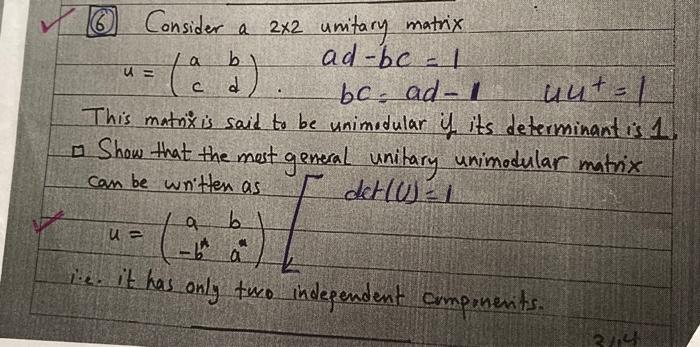 6 Consider a 2x2 unitary matrix
u = ( a b
c d ) . ad - bc = 1
bc = ad - 1 uu+ = 1
This matrix is said to be unimodular if its determinant is 1.
□ Show that the most general unitary unimodular matrix
can be written as det(U) = 1
u = ( a b
-b* a* )
i.e. it has only two independent components.